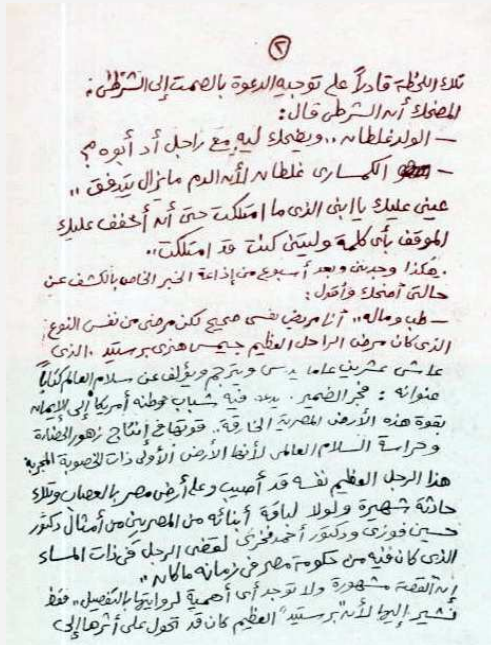 ٢
تلك اللحظة قادراً على توجيه الدعوة بالصمت إلى الشرطى :
المضحك أن الشرطى قال :
ـ الولد غلطان .. وبيضحك ليه مع راجل أد أبوه ؟
ـ الكمسارى غلطان لأن الدم مازال يتدفق ..
عينى عليك يا ابنى الذى ما امتلكت حتى أن أخفف عليك
الموقف بأى كلمة وليتنى كنت قد امتلكت ..
هكذا وجدتنى وبعد أسبوع من إذاعة الخبر الخاص بالكشف عن
حالتى أضحك وأقول :
ـ طب وماله .. أنا مريض نفسى صحيح لكن مرضى من نفس النوع
الذى كان مرض الراحل العظيم جيمس هنرى برستيد . الذى
عاش عشرين عاما يدرس ويترجم ويؤلف عن سلام العالم كتاباً
عنوانه : فجر الضمير . فيه شباب وطنه أمريكا إلى الإيمان
بقوة هذه الأرض المصرية الخارقة .. قوتها فى إنتاج زهور الحضارة
وحراسة السلام العالمى لأنها الأرض الأولى ذات الخصوبة
هذا الرجل العظيم نفسه قد أصيب وعلى أرض مصر بالعصاب وتلك
حادثة شهيرة ولولا لباقة أبنائه من المصريين من أمثال دكتور
حسين فوزى ودكتور أحمد فخرى لقضى الرجل فى ذات المساء
الذى كان فيه من حكومة مصر فى زمانه ماكان ..
إن القصة مشهورة ولا توجد أى أهمية لروايتها بالتفصيل .. فقط
نشير إليها لأن "برستيد" العظيم كان قد تحول على أثرها إلى